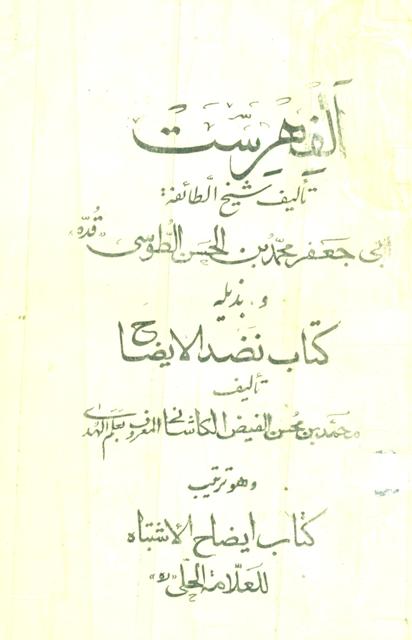 الفهرست
تأليف شيخ الطائفة:
ابي جعفر محمد بن الحسن الطوسي «قده»
و بذيله
كتاب نضد الايضاح
تأليف
محمد بن محسن الفيض الكاشاني المعروف بعلم الهدى
وهو ترتيب
كتاب ايضاح الاشتباه
للعلامة الحلي «ره»